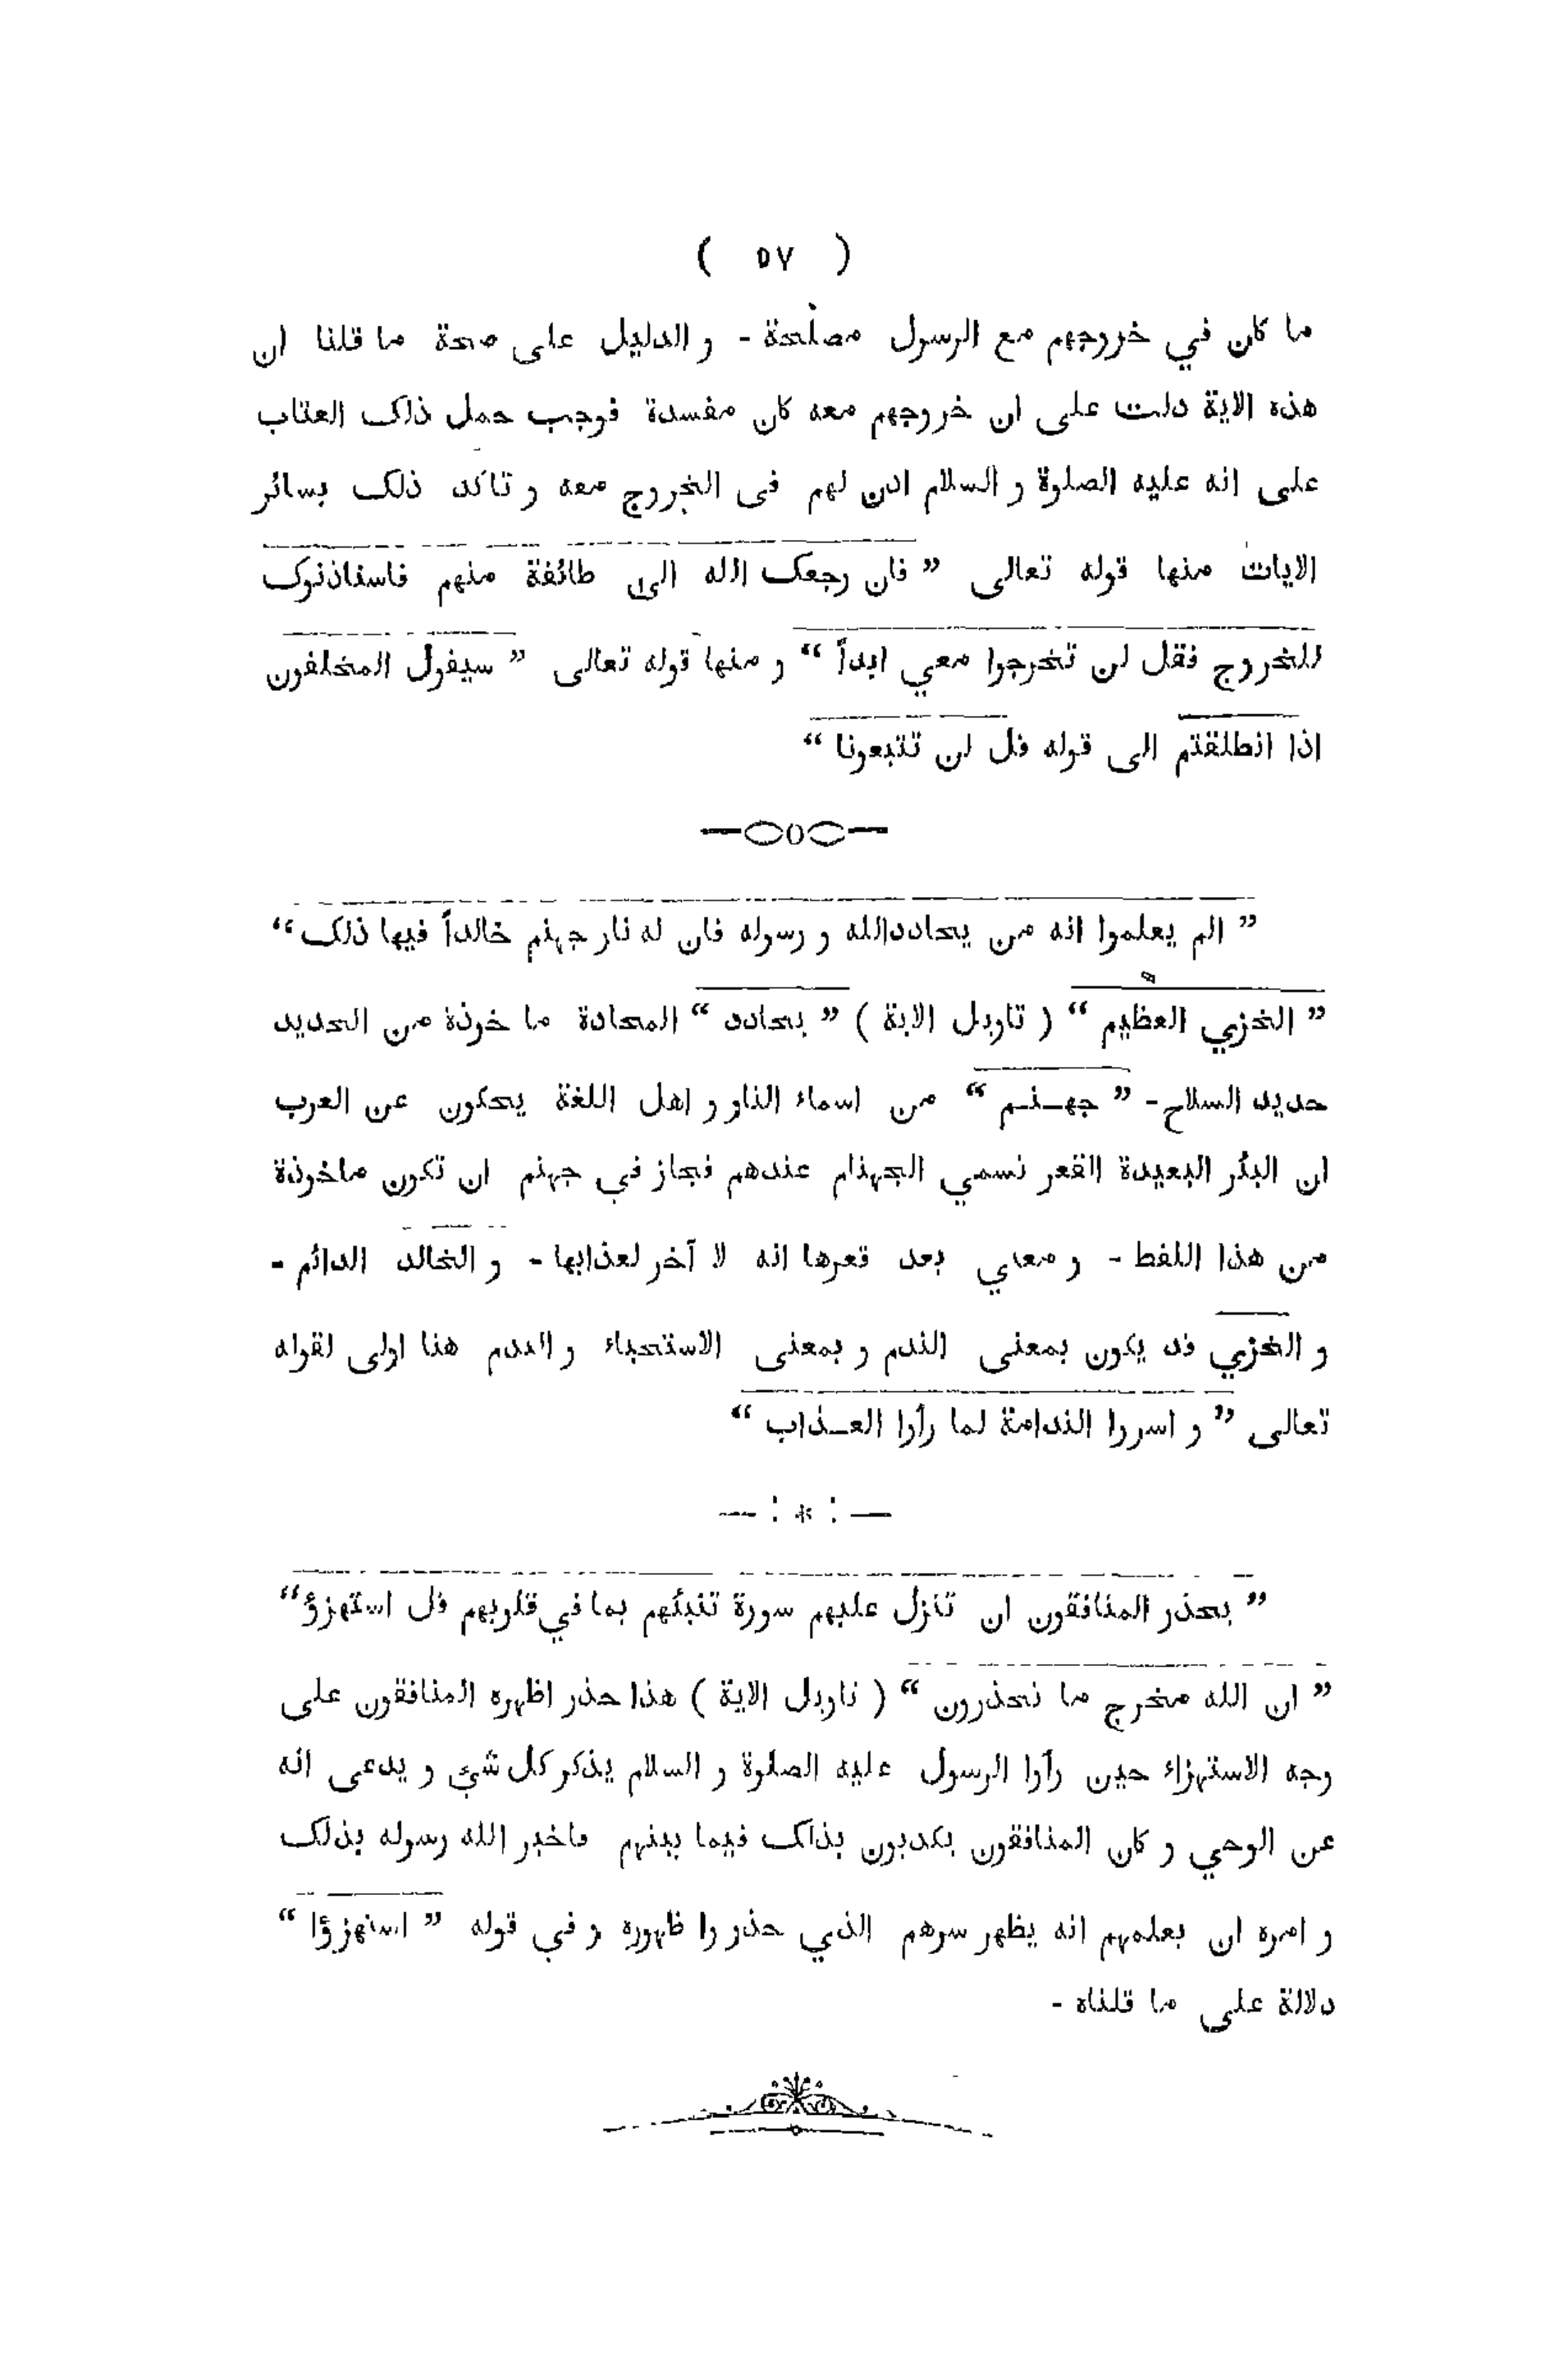 ( ٥٧ )
ما كان في خروجهم مع الرسول مصلحة - و الدليل على صحة ما قلنا ان
هذه الاية دلت على ان خروجهم معه كان مفسدة فوجب حمل ذلك العتاب
على انه عليه الصلوة و السلام اذن لهم فى الخروج معه و تاكد ذلك بسائر
الايات منها قوله تعالى ” فان رجعك الله الى طائفة منهم فاستاذنوك
للخروج فقل لن تخرجوا معي ابداً “ و منها قوله تعالى ” سيقول المخلفون
اذا انطلقتم الى قوله قل لن تتبعونا “
” الم يعلموا انه من يحاددالله و رسوله فان له نار جهنم خالداً فيها ذلك “
” الخزي العظيم “ ( تاويل الاية ) ” يحادد “ المحادة ما خوذة من الحديد
حديد السلاح - ” جهـنـم “ من اسماء النار و اهل اللغة يحكون عن العرب
ان البئر البعيدة القعر تسمي الجهنام عندهم فجاز في جهنم ان تكون ماخوذة
من هذا اللفظ - و معني بعد قعرها انه لا آخر لعذابها - و الخالد الدائم -
و الخزي قد يكون بمعنى الندم و بمعنى الاستحياء و الندم هنا اولى لقوله
تعالى ” و اسروا الندامة لما رأوا العـذاب “
— : * : —
” يحذر المنافقون ان تنزل عليهم سورة تنبئهم بما في قلوبهم قل استهزؤ “
” ان الله مخرج ما تحذرون “ ( تاويل الاية ) هذا حذر اظهره المنافقون على
وجه الاستهزاء حين رأوا الرسول عليه الصلوة و السلام يذكر كل شئ و يدعى انه
عن الوحي و كان المنافقون يكذبون بذلك فيما بينهم فاخبر الله رسوله بذلك
و امره ان يعلمهم انه يظهر سرهم الذي حذر وا ظهوره و في قوله ” استهزؤا “
دلالة على ما قلناه -